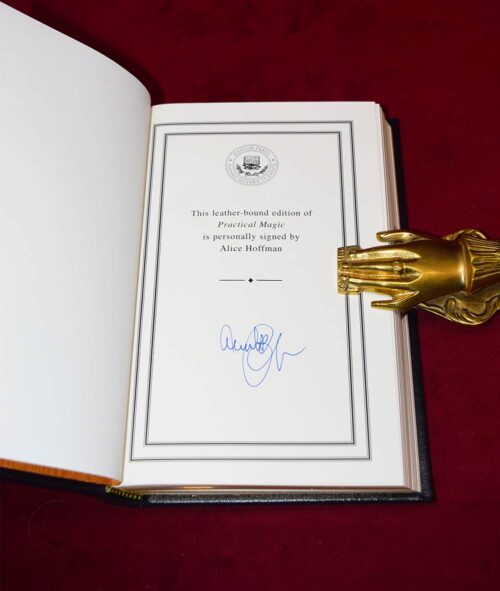 EASTON PRESS
This leather-bound edition of
Practical Magic
is personally signed by
Alice Hoffman